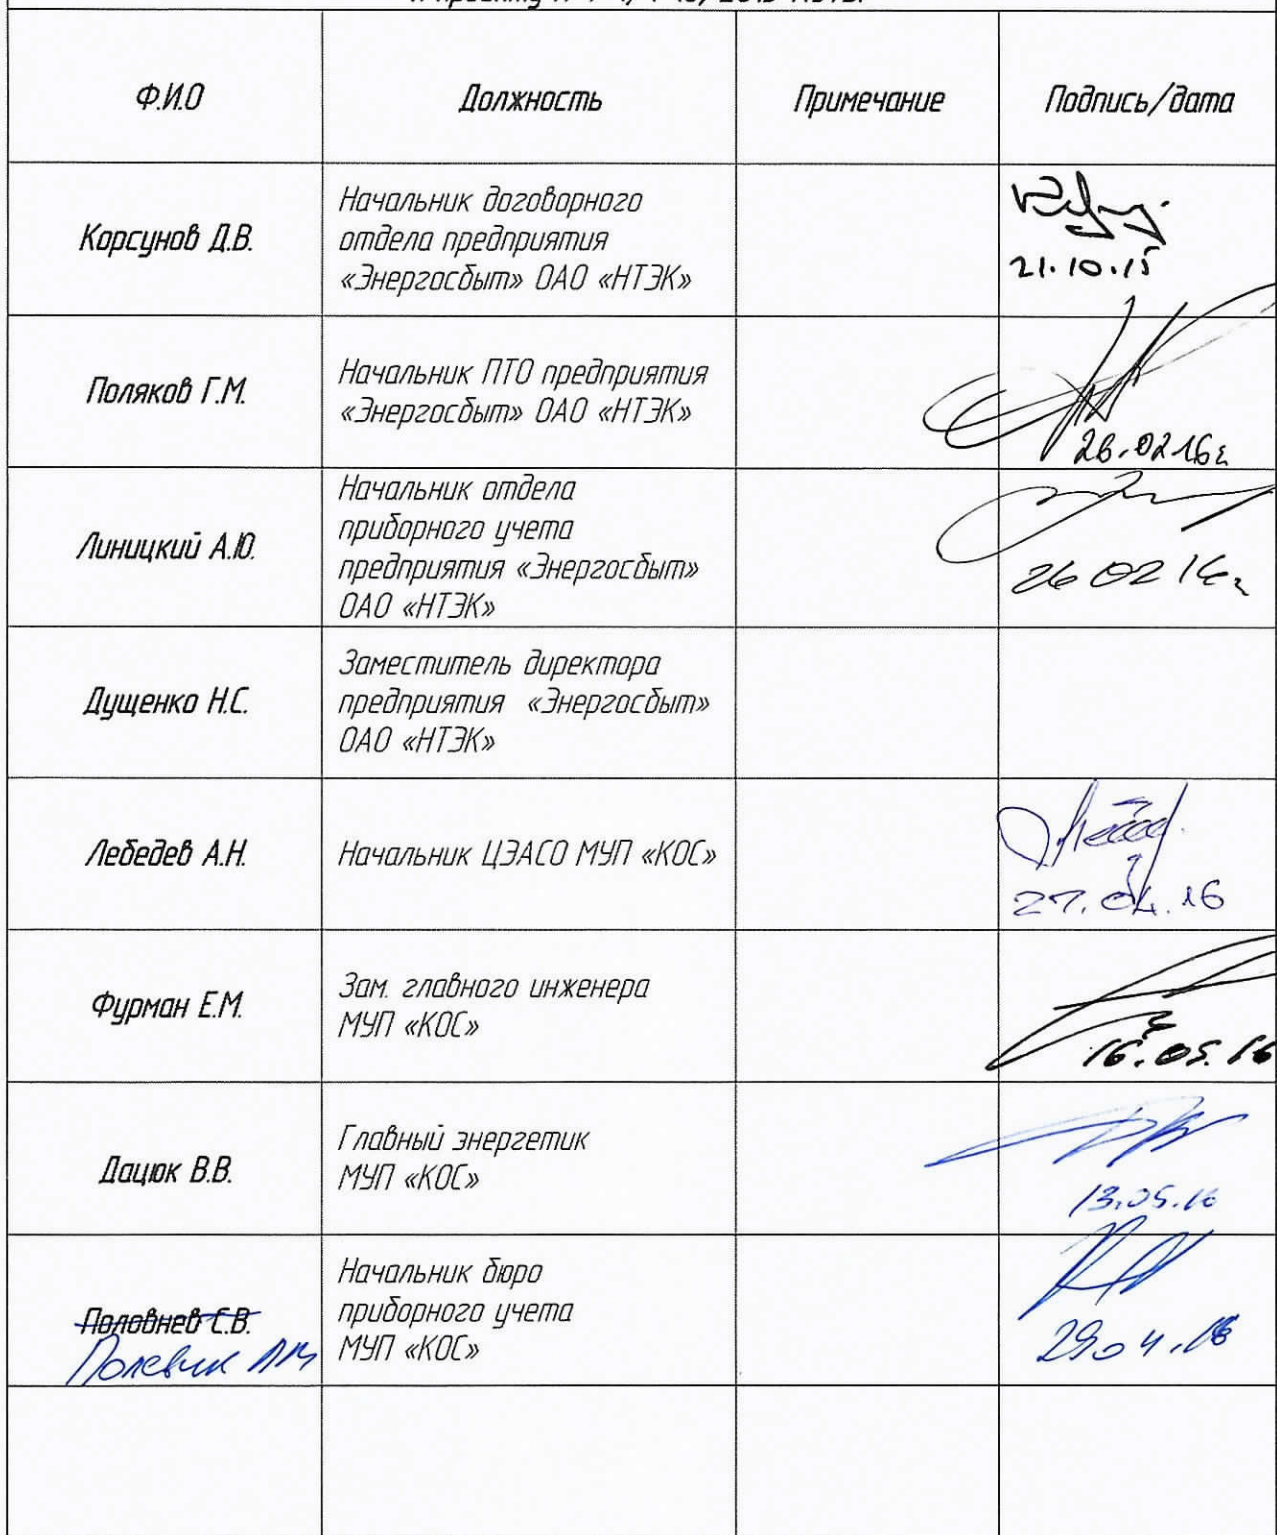 Ф.И.О Должность Примечание Подпись/дата
Корсунов Д.В.
Начальник договорного
отдела предприятия
«Энергосбыт» ОАО «НТЭК»
21.10.15
Поляков Г.М.
Начальник ПТО предприятия
«Энергосбыт» ОАО «НТЭК»
26.02.16г
Линицкий А.Ю.
Начальник отдела
приборного учета
предприятия «Энергосбыт»
ОАО «НТЭК»
26 02 16г
Дущенко Н.С.
Заместитель директора
предприятия «Энергосбыт»
ОАО «НТЭК»
Лебедев А.Н.
Начальник ЦЭАСО МУП «КОС»
27.04.16
Фурман Е.М.
Зам. главного инженера
МУП «КОС»
16.05.16
Дацюк В.В.
Главный энергетик
МУП «КОС»
13.05.16
Половнев С.В.
Начальник бюро
приборного учета
МУП «КОС»
29.04.16